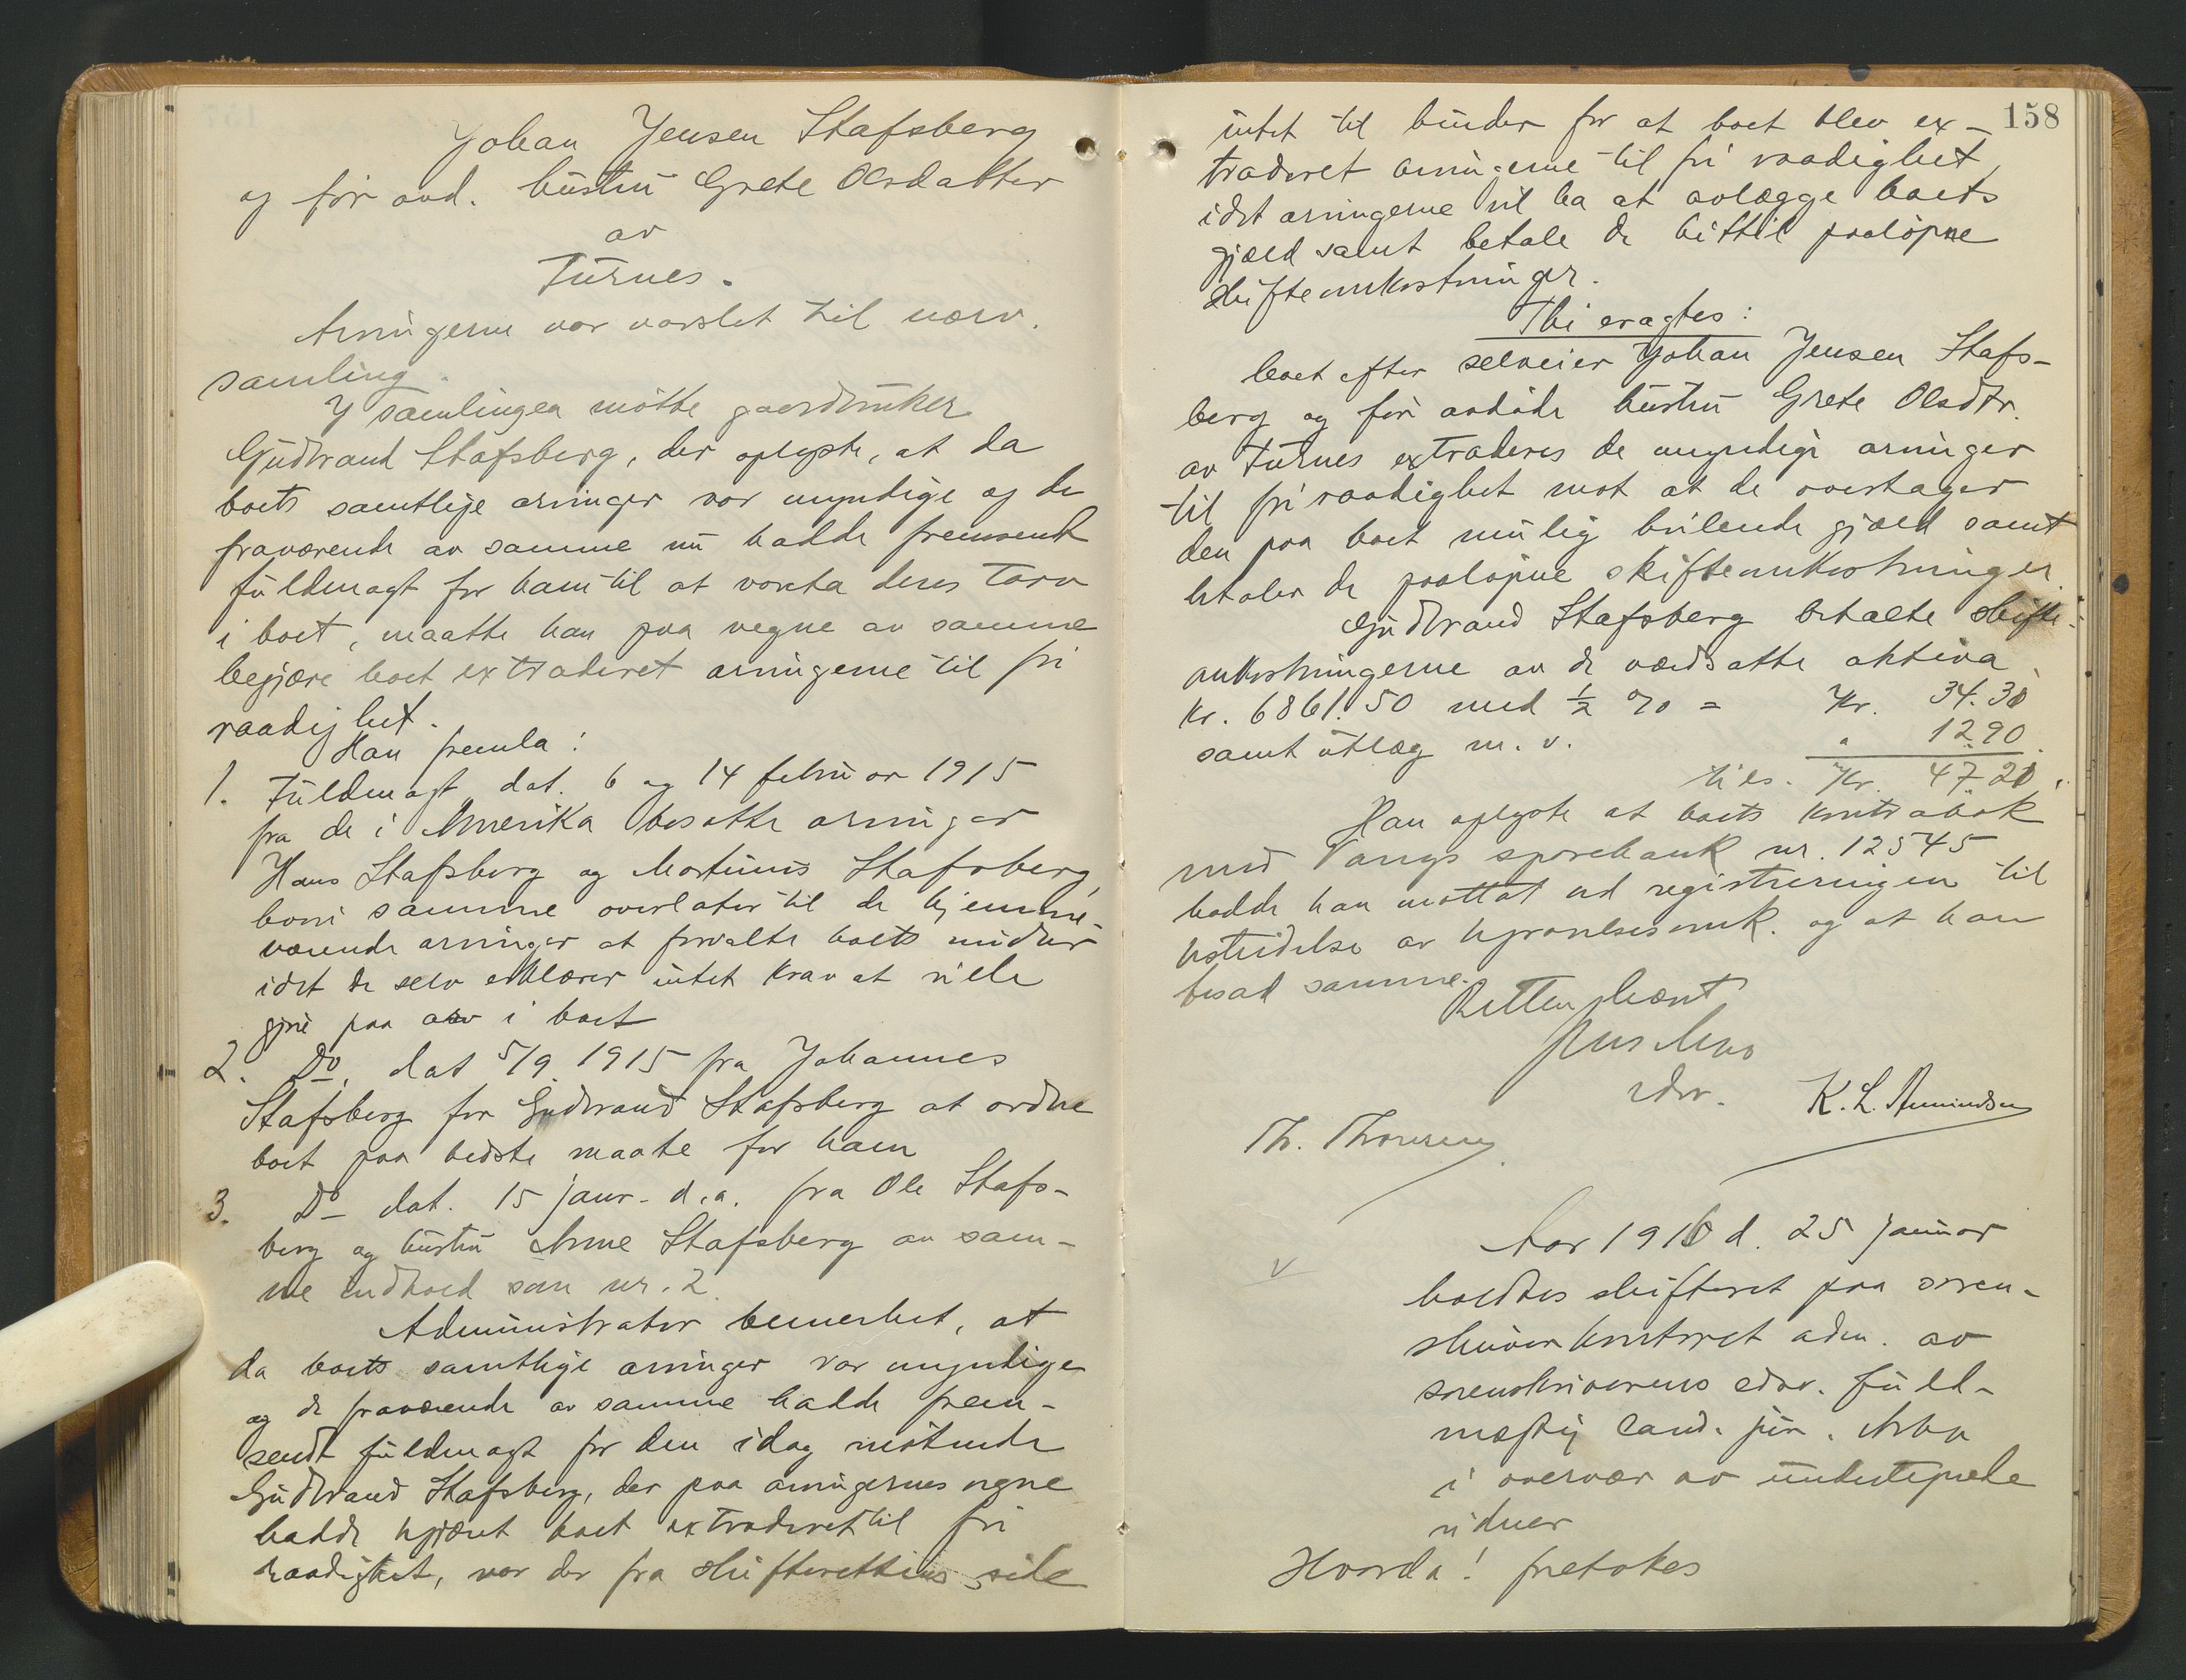 Johan Jensen Stafsberg
og før avd. hustru Grete Olsdatter
av
Furnes.
Arvingerne var varslet til nærv.
samling.
I samlingen møtte gaardbruker
Gudbrand Stafsberg, der oplyste, at da
boets samtlige arvinger var myndige og de
fraværende av samme nu hadde fremsendt
fuldmagt for ham til at vareta deres tarv
i boet, maatte han paa vegne av samme
begjære boet extraderet arvingerne til fri
raadighet.
Han fremla:
1. Fuldmagt dat. 6 og 14 februar 1915
fra de i Amerika bosatte arvinger
Hans Stafsberg og Martinus Stafsberg,
hvori samme overlater til de hjemme-
værende arvinger at forvalte boets midler
idet de selv erklærer intet krav at ville
gjøre paa arv i boet
2. Do. dat 5/9 1915 fra Johannes
Stafsberg for Gudbrand Stafsberg at ordne
boet paa bedste maate for ham
3. Do dat. 15 janr. d.a. fra Ole Stafs-
berg og hustru Anne Stafsberg av sam-
me indhold som nr. 2.
Administrator bemerket, at
da boets samtlige arvinger var myndige
og de fraværende av samme hadde frem-
sendt fuldmagt for den idag møtende
Gudbrand Stafsberg, der paa arvingernes vegne
hadde begjæret boet extraderet til fri
raadighet, var der fra skifterettens side
158
intet til hinder for at boet blev ex-
traderet arvingerne til fri raadighet,
idet arvingerne vil ha at avlægge boets
gjæld samt betale de hittil paaløpne
skifteomkostninger.
Thi eragtes:
boet efter selveier Johan Jensen Stafs-
berg og før avdøde hustru Grete Olsdtr.
av Furnes extraderes de myndige arvinger
til fri raadighet mot at de overtager
den paa boet mulig hvilende gjæld samt
betaler de paaløpne skifteomkostninger.
Gudbrand Stafsberg betalte skifte-
omkostningerne av de værdsatte aktiva
kr. 6861.50 med ½ % = Kr. 34.30
samt utlæg m. v. " 12.90
tils. Kr. 47.20.
Han oplyste at boets kontrabok
med Vangs sparebank nr. 12545
hadde han mottat ved registreringen til
bestridelse av begravelsesomk. og at han
besad samme.
Retten hævet
edsv.
K. L. Amundsen
Th. Thoresen
Aar 1916 d. 25 januar
v
holdtes skifteret paa soren-
skriverkontoret adm. av
sorenskriverens edsv. fuld-
mægtig cand. jur.
i overvær av undertegnede
vidner
Hvorda! foretokes